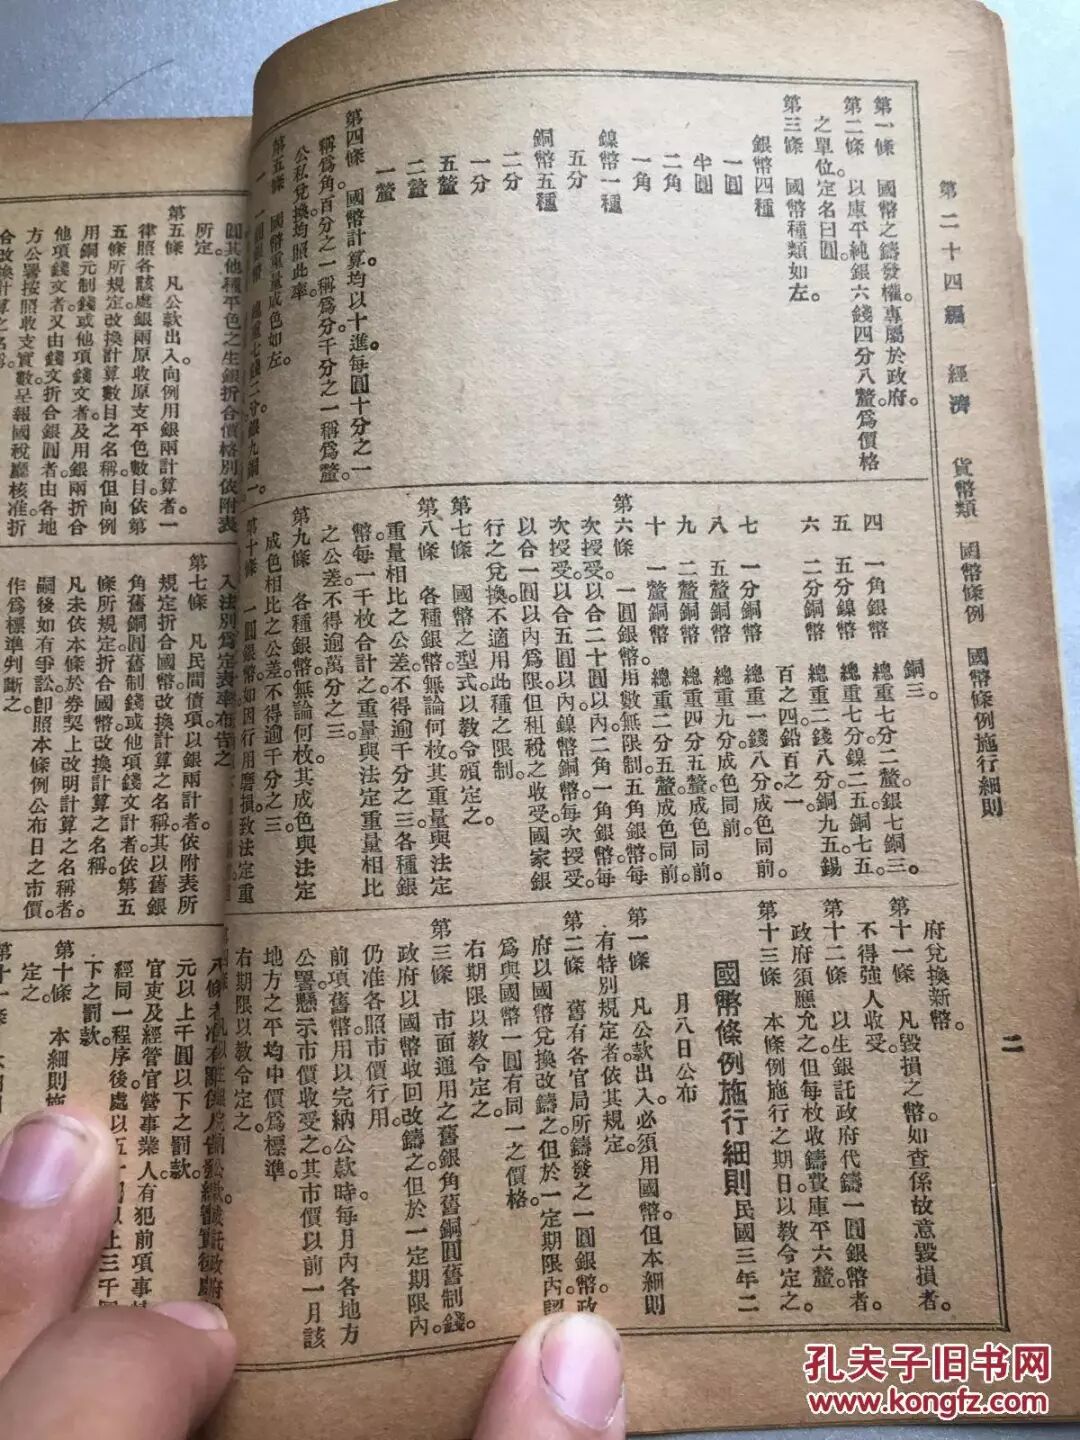 第二十四編　經濟　貨幣類　國幣條例　國幣條例施行細則
二
第一條　國幣之鑄發權專屬於政府。
第二條　以庫平純銀六錢四分八釐爲價格
之單位定名曰圓。
第三條　國幣種類如左。
銀幣四種
一圓
半圓
二角
一角
鎳幣一種
五分
銅幣五種
二分
一分
五釐
二釐
一釐
第四條　國幣計算均以十進每圓十分之一
稱爲角百分之一稱爲分千分之一稱爲釐。
公私兌換均照此率。
第五條　國幣重量成色如左。
一　一圓銀幣　總重七錢二分銀九銅一。
銅三。
四　一角銀幣　總重七分二釐。銀七銅三。
五　五分鎳幣　總重七分鎳二五。銅七五。
六　二分銅幣　總重二錢八分。銅九五錫
百之四。鉛百之一。
七　一分銅幣　總重一錢八分成色同前。
八　五釐銅幣　總重九分成色同前。
九　二釐銅幣　總重四分五釐成色同前。
十　一釐銅幣　總重二分五釐成色同前。
第六條　一圓銀幣。用數無限制五角銀幣。每
次授受以合二十圓以內。二角一角銀幣。每
次授受。以合五圓以內鎳幣銅幣。每次授受。
以合一圓以內爲限但租稅之收受國家銀
行之兌換不適用此種之限制。
第七條　國幣之型式以教令頒定之。
第八條　各種銀幣無論何枚其重量與法定
重量相比之公差。不得逾千分之三各種銀
幣每一千枚合計之重量與法定重量相比
之公差不得逾萬分之三。
第九條　各種銀幣無論何枚其成色與法定
成色相比之公差。不得逾千分之三。
第十條　一圓銀幣。如因行用磨損致法定重
府兌換新幣。
第十一條　凡毀損之幣如查係故意毀損者。
不得強人收受。
第十二條　以生銀託政府代鑄一圓銀幣者。
政府須應允之但每枚收鑄費庫平六釐。
第十三條　本條例施行之期日以教令定之。
國幣條例施行細則民國三年二
月八日公布
第一條　凡公款出入必須用國幣但本細則
有特別規定者依其規定。
第二條　舊有各官局所鑄發之一圓銀幣。政
府以國幣兌換改鑄之但於一定期限內認
爲與國幣一圓有同一之價格。
右期限以教令定之。
第三條　市面通用之舊銀角舊銅圓舊制錢。
政府以國幣收回改鑄之。但於一定期限內
仍准各照市價行用。
前項舊幣用以完納公款時每月內各地方
公署懸示市價收受之。其市價以前一月該
地方之平均中價爲標準。
右期限以教令定之。
圓其他種平色之生銀折合價格別依附表
所定。
第五條　凡公款出入向例用銀兩計算者。一
律照各該處銀兩原收原支平色數目依第
五條所規定改換計算數目之名稱但向例
用銅元制錢或他項錢文者及用銀兩折合
他項錢文者又由錢文折合銀圓者由各地
方公署按照收支實數呈報國稅廳核准折
合改換計算之名稱。
第七條　凡民間債項以銀兩計者。依附表所
規定折合國幣改換計算之名稱其以舊銀
角舊銅圓舊制錢或他項錢文計者依第五
條所規定折合國幣改換計算之名稱。
凡未依本條於券契上改明計算之名稱者。
嗣後如有爭訟卽照本條例公布日之市價。
作爲標準判斷之。
元以上千圓以下之罰款。
官吏及經管官營事業人有犯前項事
經同一程序後處以五
下之罰款。
第十條　本細則施
定之。
孔夫子旧书网
www.kongfz.com